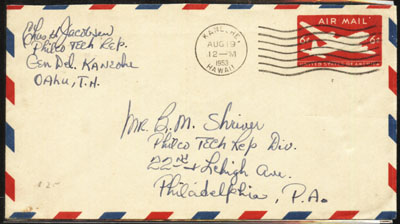 Jacobsen
Philco Tech Rep.
Gen Del. Kaneohe
Oahu, T.H.
KANEOHE
AUG 19
12-M
1953
HAWAII
AIR MAIL
6¢ 6¢
UNITED STATES
Mr. B. M. Shriver
Philco Tech Rep Div.
22nd & Lehigh Ave.
Philadelphia, P.A.